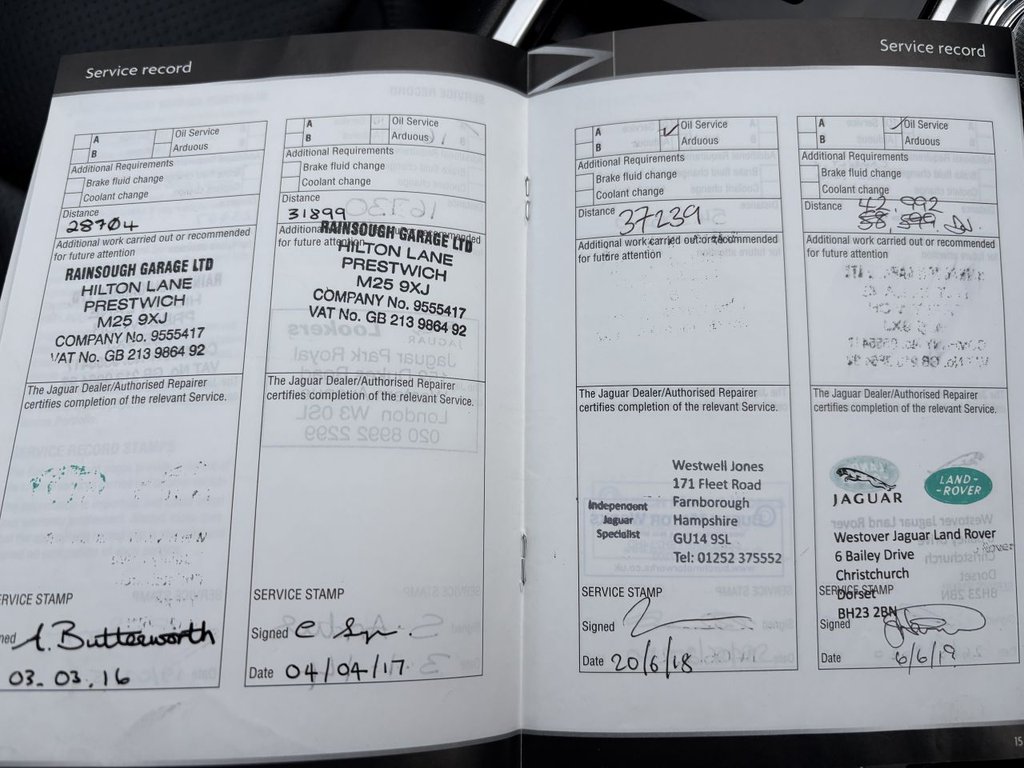 Service record
A
Oil Service
B
Arduous
Additional Requirements
Brake fluid change
Coolant change
Distance
28704
Additional work carried out or recommended
for future attention
RAINSOUGH GARAGE LTD
HILTON LANE
PRESTWICH
M25 9XJ
COMPANY No. 9555417
VAT No. GB 213 9864 92
The Jaguar Dealer/Authorised Repairer
certifies completion of the relevant Service.
ERVICE STAMP
ned A. Butterworth
03.03.16
A
Oil Service
B
Arduous
Additional Requirements
Brake fluid change
Coolant change
Distance
31899
Additional
for future attention
RAINSOUGH GARAGE LTD
HILTON LANE
PRESTWICH
M25 9XJ
COMPANY No. 9555417
VAT No. GB 213 9864 92
The Jaguar Dealer/Authorised Repairer
certifies completion of the relevant Service.
SERVICE STAMP
Signed
Date 04/04/17
Service record
A
Oil Service
B
Arduous
Additional Requirements
Brake fluid change
Coolant change
Distance 37239
Additional work carried out or recommended
for future attention
The Jaguar Dealer/Authorised Repairer
certifies completion of the relevant Service.
Independent
Jaguar
Specialist
Westwell Jones
171 Fleet Road
Farnborough
Hampshire
GU14 9SL
Tel: 01252 375552
SERVICE STAMP
Signed
Date 20/6/18
A
Oil Service
B
Arduous
Additional Requirements
Brake fluid change
Coolant change
42,992
Distance
Additional work carried out or recommended
for future attention
The Jaguar Dealer/Authorised Repairer
certifies completion of the relevant Service.
JAGUAR
LAND-
-ROVER
Westover Jaguar Land Rover
6 Bailey Drive
Christchurch
Dorset
BH23 2BN
SERVICE STAMP
Signed
Date 6/6/19
15